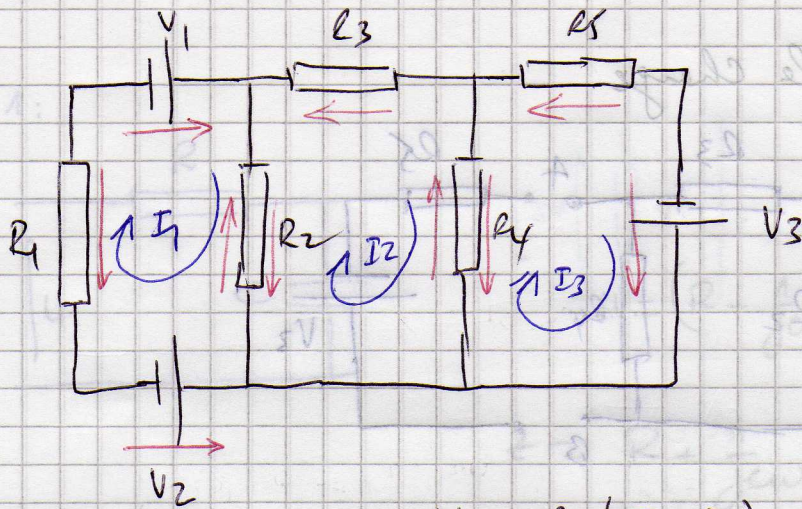 V1 R3 R5
R1 I1 R2 I2 R4 I3 V3
V2